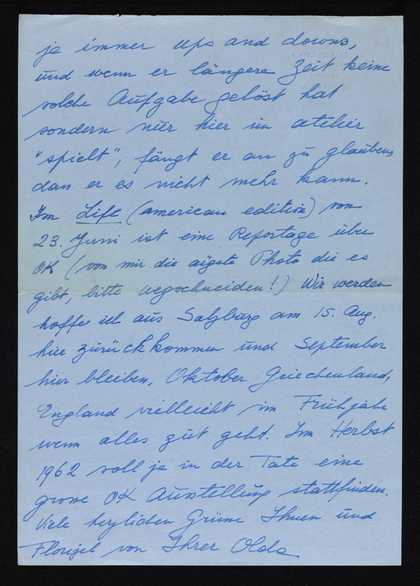 ja immer ups and downs,
und wenn er längere Zeit keine
solche Aufgabe gelöst hat
sondern nur hier im atelier
"spielt", fängt er an zu glauben
dan er es nicht mehr kann.
Im Life (american edition) von
23. Juni ist eine Reportage über
OK (von mir die aigste Photo die es
gibt, bitte wegschneiden!) Wir werden
hoffe ich aus Salzburg am 15. Aug.
hier zurückkommen und September
hier bleiben, Oktober Griechenland,
England vielleicht im Frühjahr
wenn alles gut geht. Im Herbst
1962 soll ja in der Tate eine
grosse OK Ausstellung stattfinden.
Viele herzlichen Grüsse Ihnen und
von Ihrer Olda